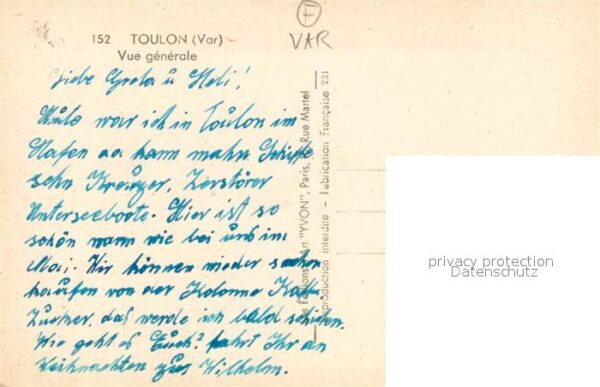 F
VAR
152 TOULON (Var)
Vue générale
Liebe Greta u Heli!
Heute war ich in Toulon im
Hafen da kann mahn Schiffe
sehn Kreuzer, Zerstörer
Unterseeboote. Hier ist so
schön warm wie bei uns im
Mai. Wir können wieder sachen
kaufen von der Kolonne Kaffe
Zucker, das werde ich bald schicken.
Wie geht es Euch? fahrt Ihr an
Weihnachten zu Wilhelm.
Les Editions d'Art "YVON", Paris, Rue Martel
Reproduction Interdite – Fabrication Française 231
privacy protection
Datenschutz